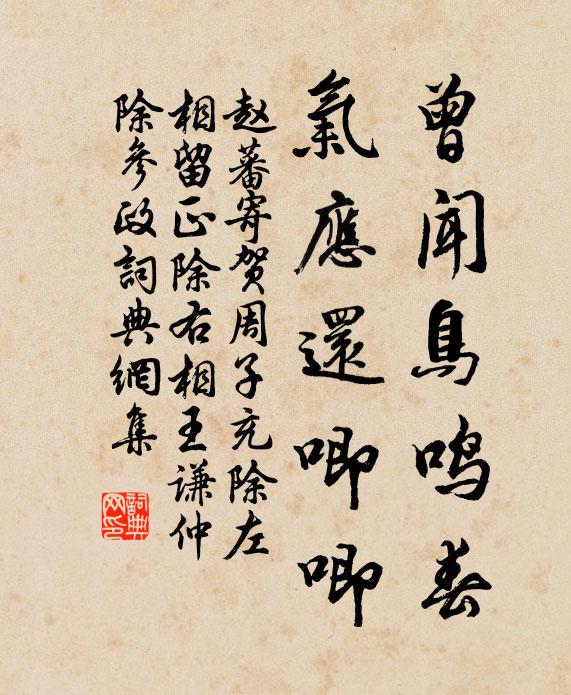 曾闻鳥鸣春
氣應還唧唧
赵蕃寄贺周子充除左
相留正除右相王谦仲
除参政詞典網集
詞典网印